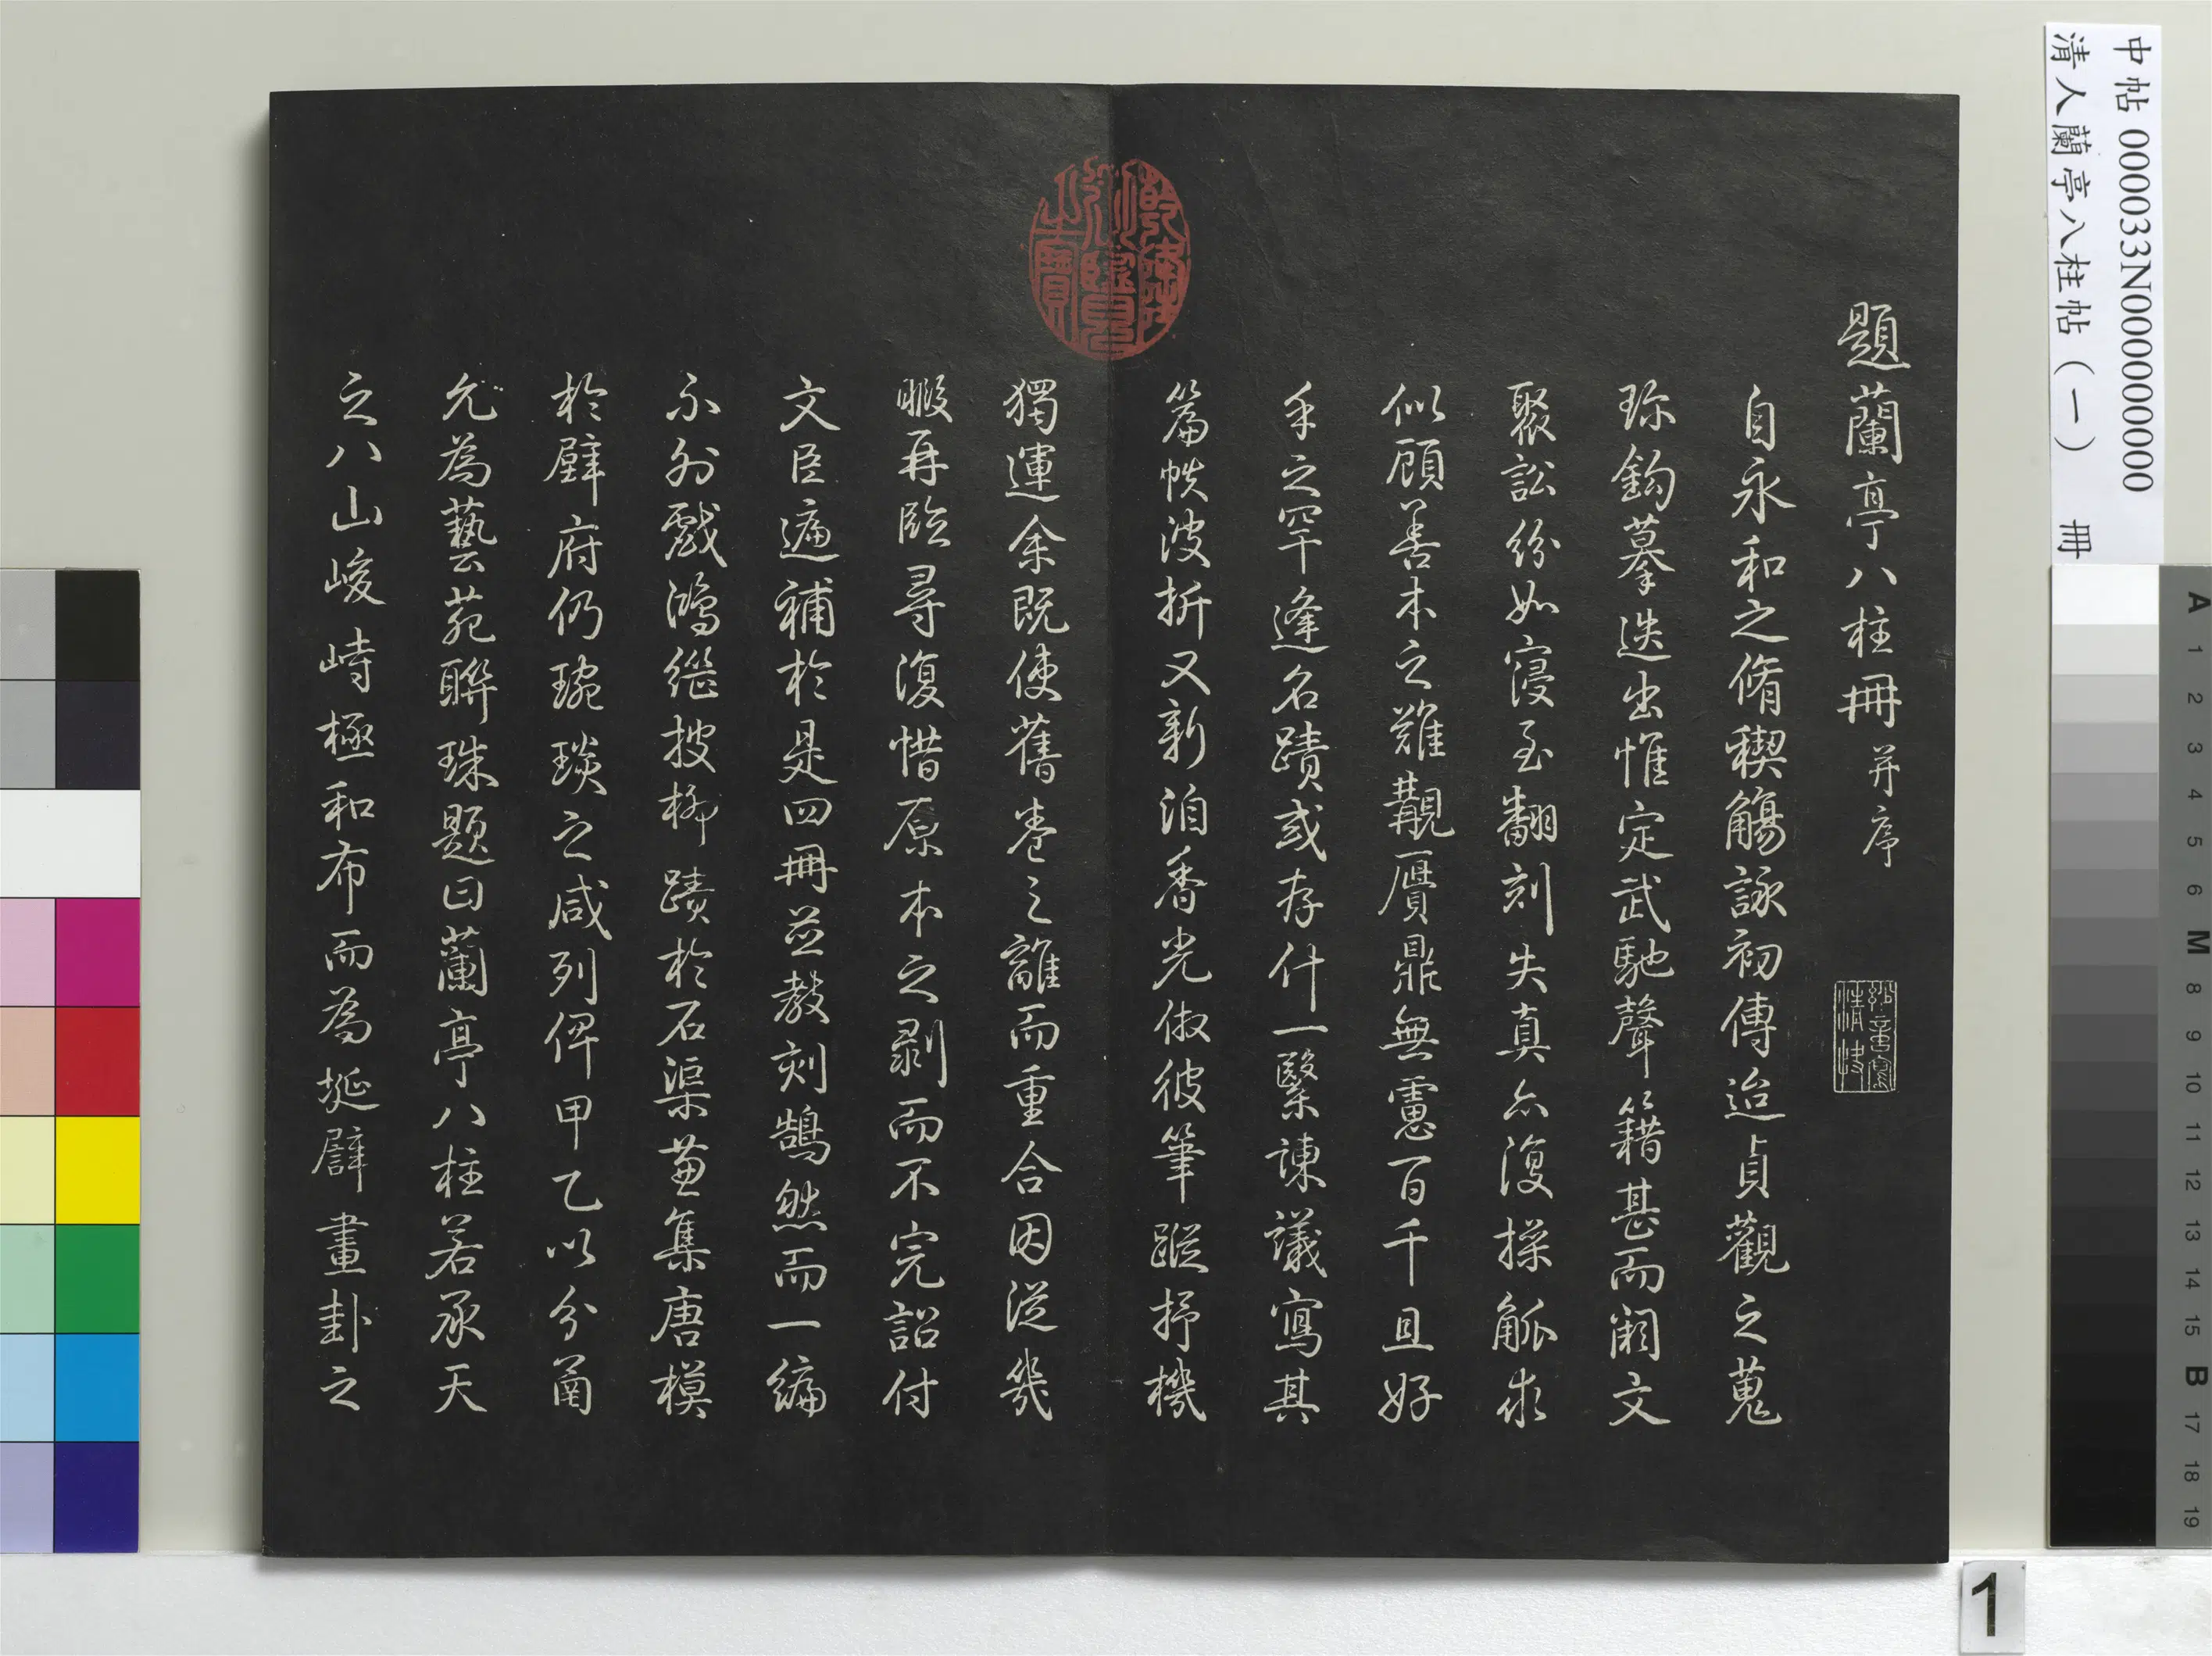 題蘭亭八柱冊并序
自永和之脩稧觴詠初傳迨貞觀之蒐
珎鉤摹迭出惟定武馳聲籍甚而闕文
聚訟紛如寖至翻刻失真亦復操觚求
似顧善本之難覯贗鼎無慮百千且好
手之罕逢名蹟或存什一緊諫議寫其
篇帙波折又新洎香光倣彼筆蹤抒機
獨運余既使舊卷之離而重合因從幾
暇再臨尋復惜原本之剥而不完詔付
文臣遍補於是四冊並教刻鵠然而一編
不外戲鴻繼搜柳蹟於石渠兼集唐模
於璧府仍琬琰之咸列俾甲乙以分函
允為藝苑聯珠題曰蘭亭八柱若承天
之八山峻峙極和布而為埏辟畫卦之
乾隆御覽之寶
中帖000033N000000000
清人蘭亭八柱帖(一) 冊
A 1 2 3 4 5 6 M 8 9 10 11 12 13 14 15 B 17 18 19
1